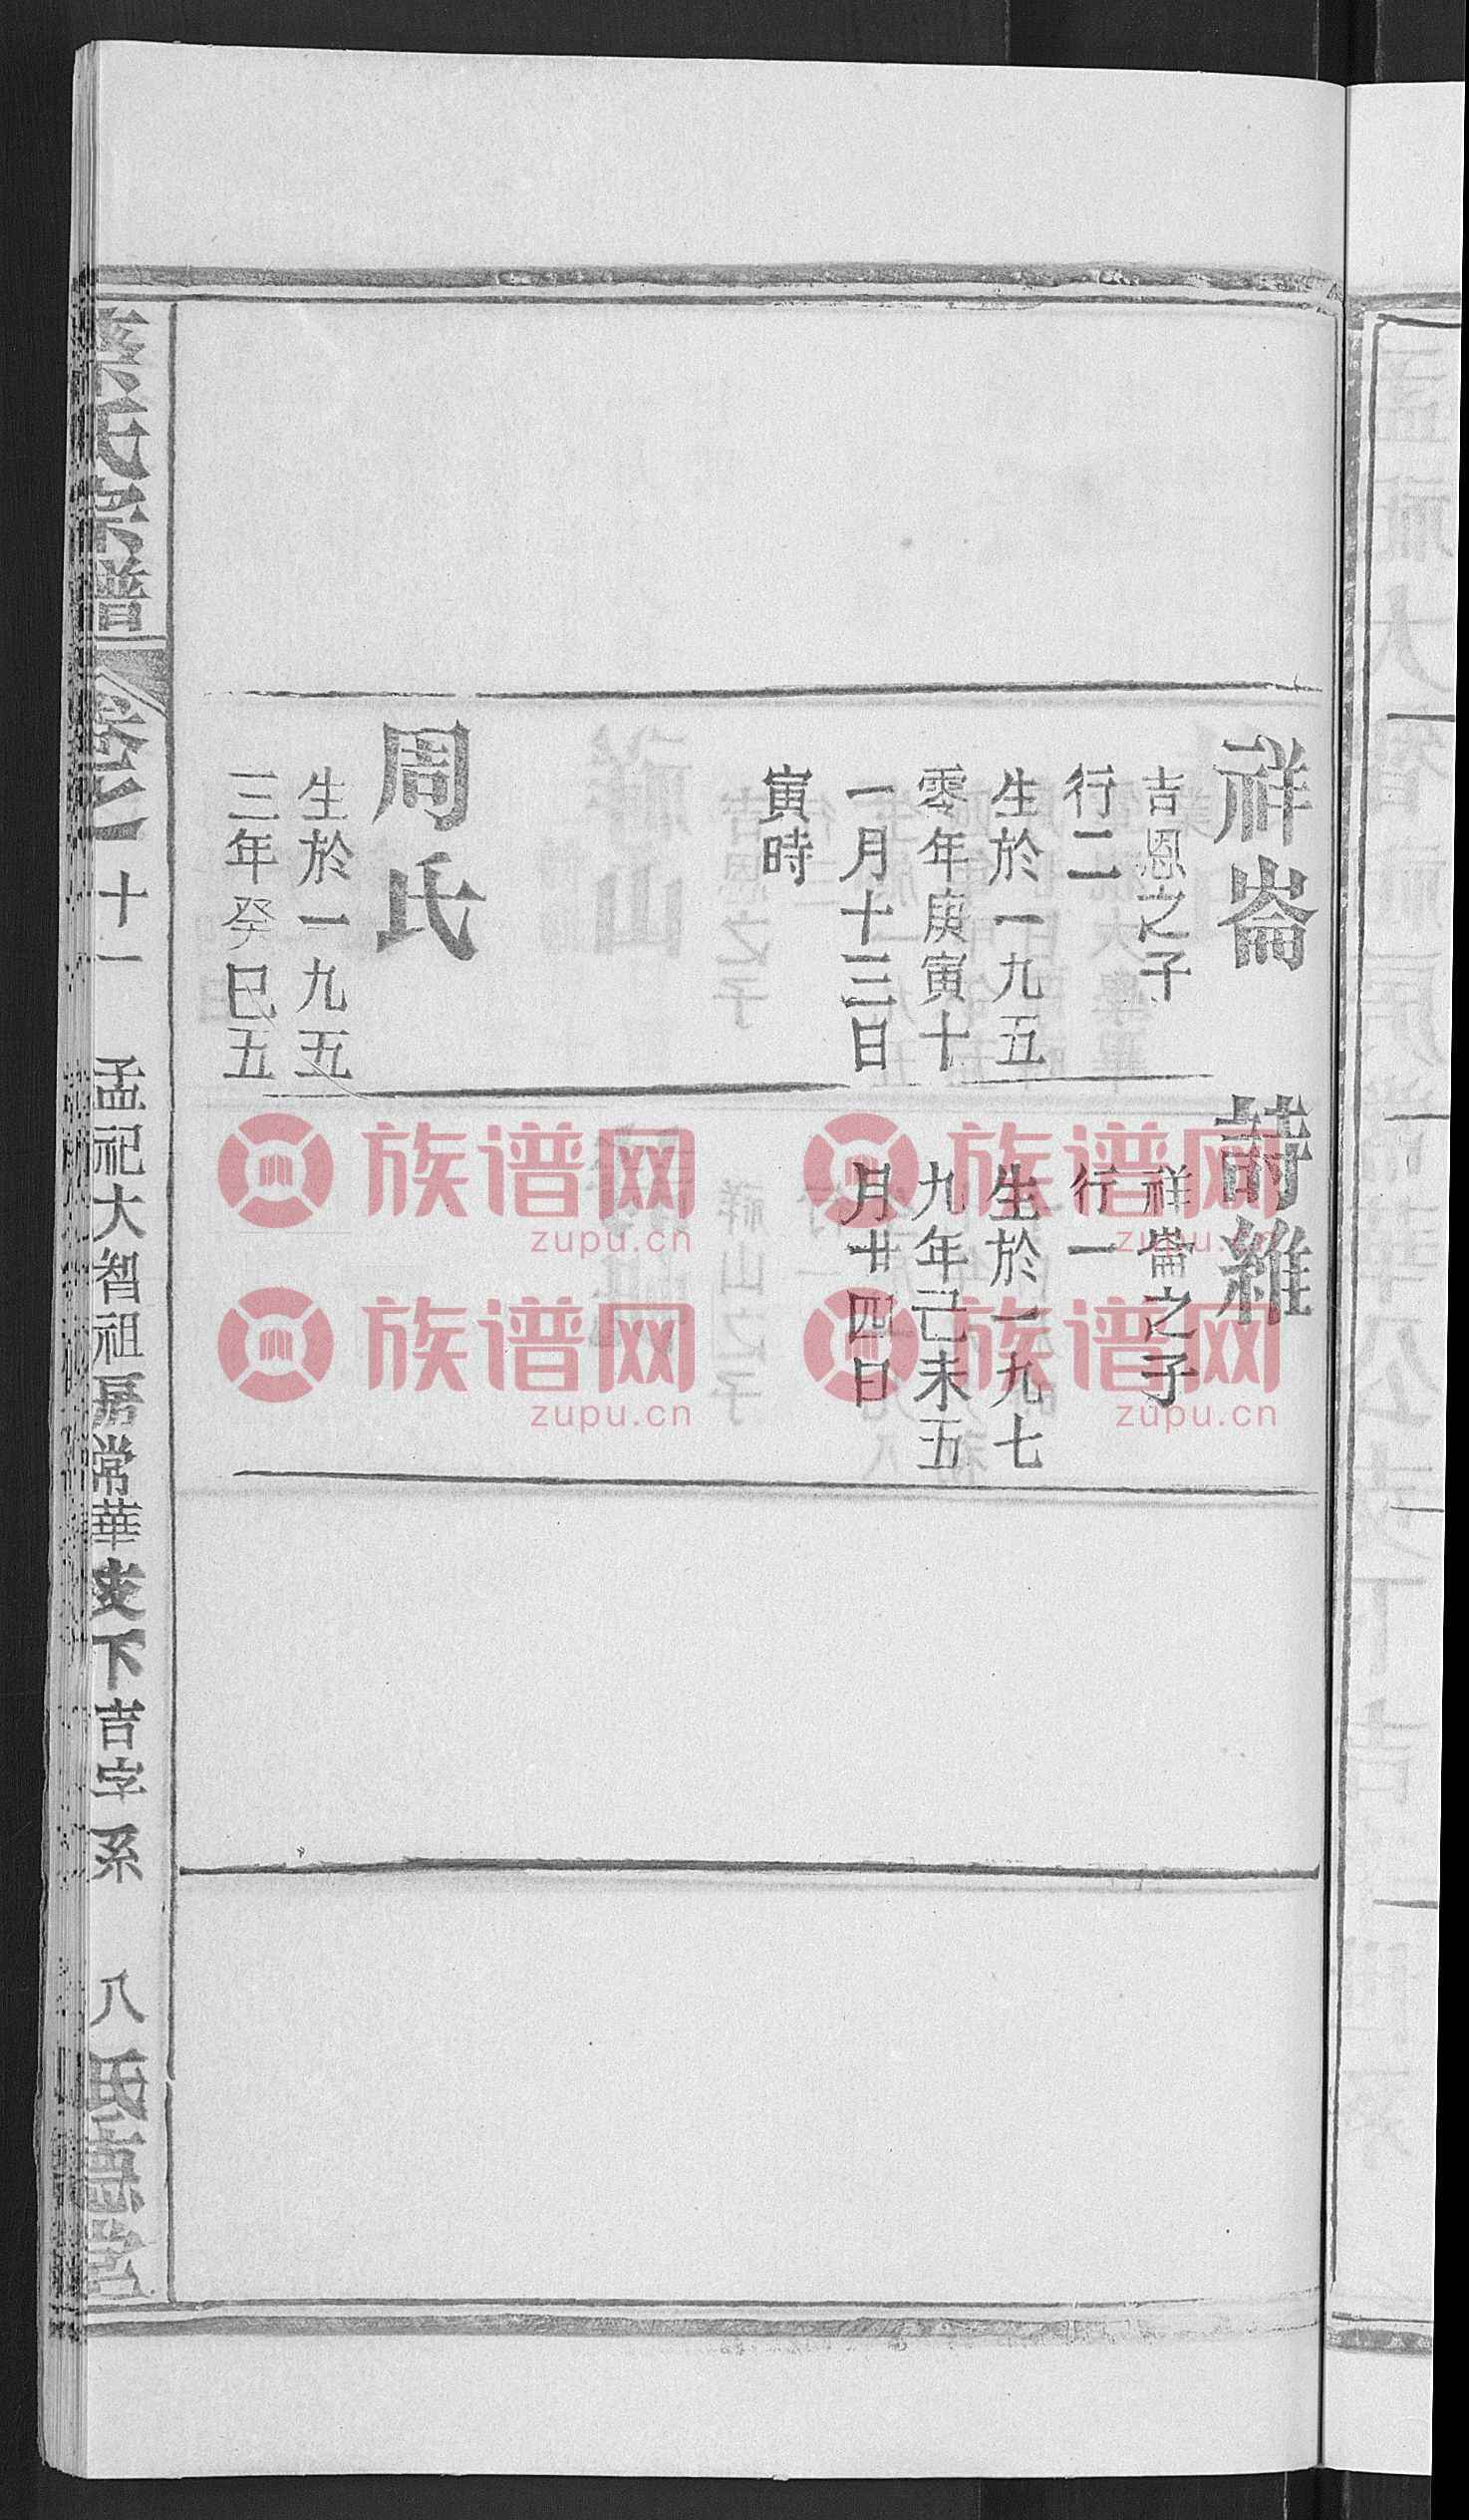 祥崙
吉恩之子
行二
生於一九五
零年庚寅十
一月十三日
寅時
周氏
生於一九五
三年癸巳五
詩維
祥崙之子
行一
生於一九七
九年己未五
月廿四日
氏宗譜
卷二十一
孟祀大智祖房常華支下吉字系
八
堂
族谱网
zupu.cn
族谱网
zupu.cn
族谱网
zupu.cn
族谱网
zupu.cn